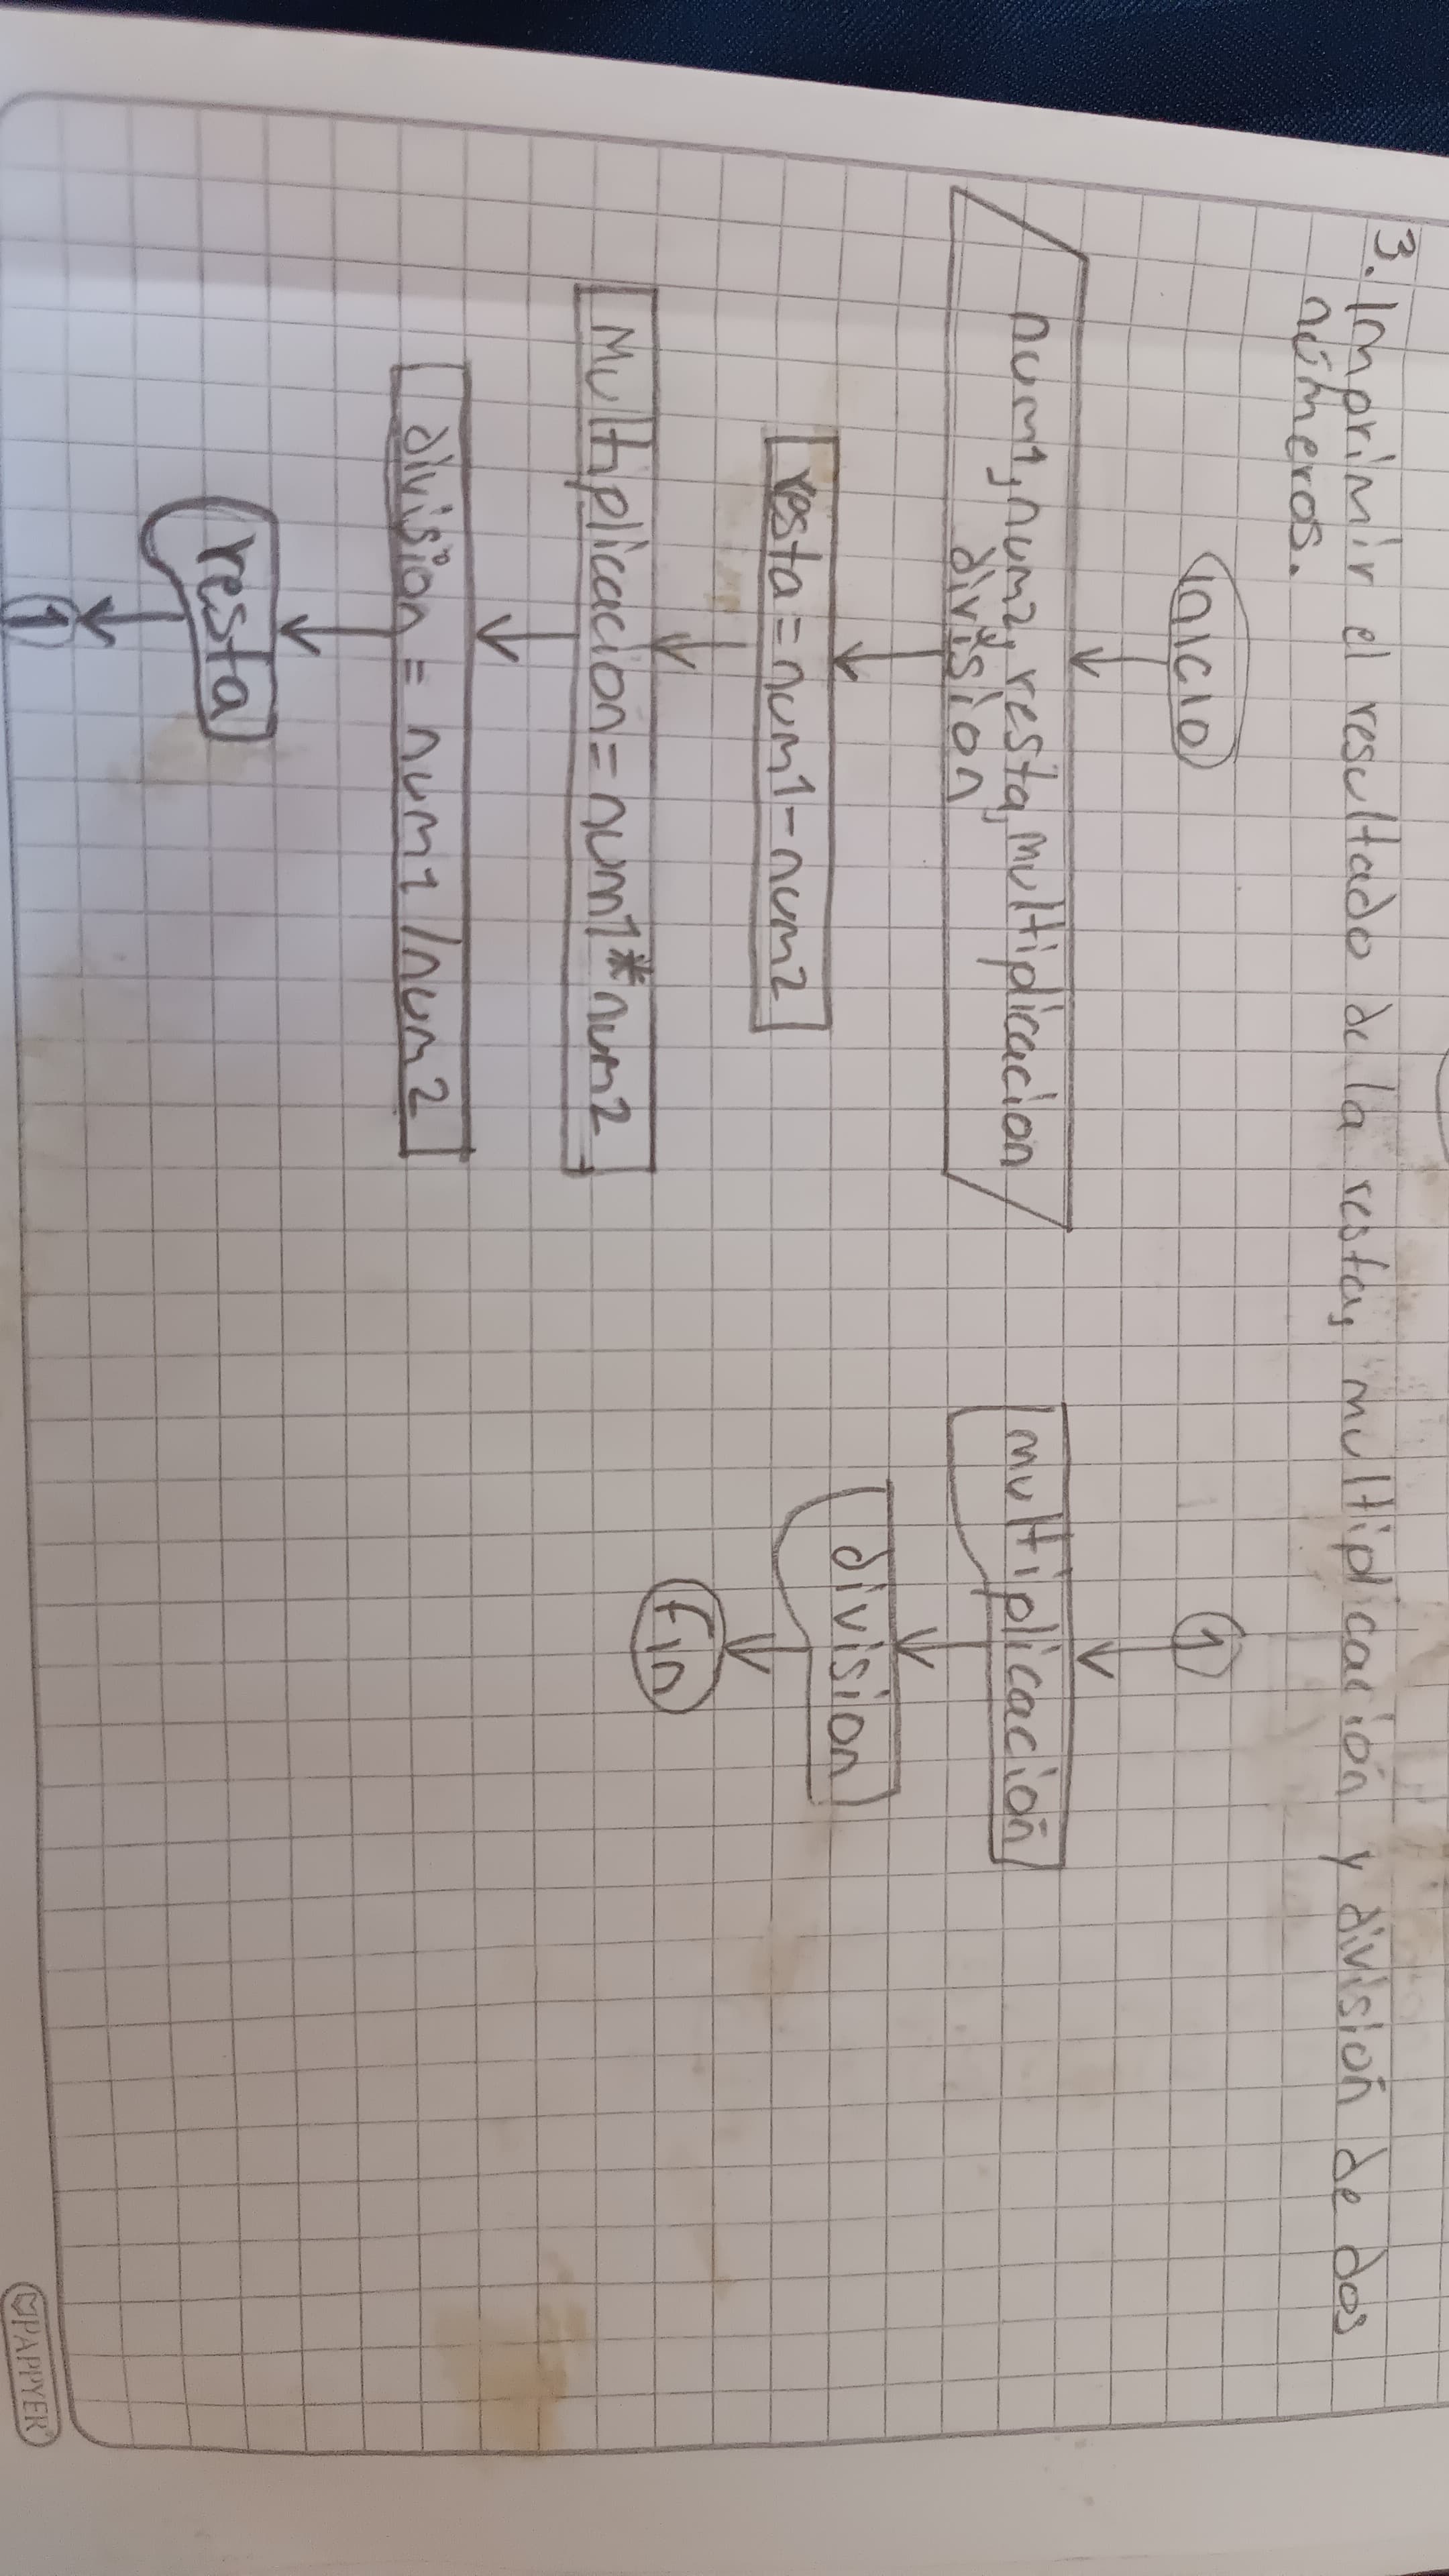 3. Imprimir el resultado de la resta, multiplicación y división de dos
números.
inicio
num1, num2, resta, multiplicacion
y
division
resta = num1 - num2
Multiplicacion = num1 * num2
division = num1 / num2
resta
1
1
multiplicación
division
fin
PAPPYER